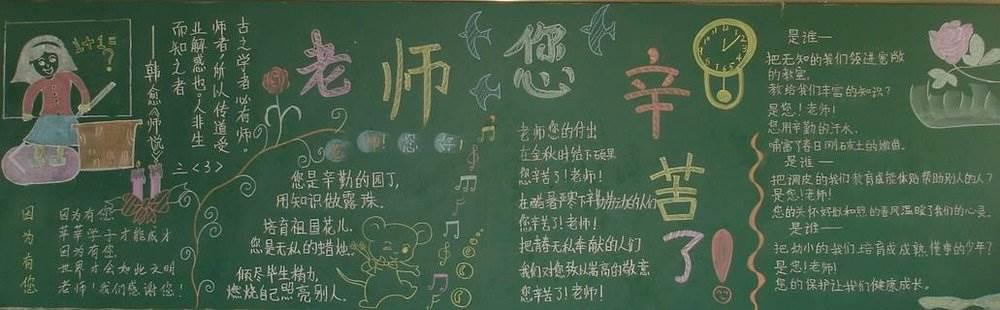 老师您辛苦了!
古之学者必有师。
师者，所以传道受
业解惑也。人非生
而知之者
——韩愈《师说》
三<3>
因为有您
因为有您
莘莘学子才能成才
因为有您.
世界才会如此文明
老师!我们感谢您!
老师!您好!
您是辛勤的园丁,
用知识做露珠.
培育祖国花儿.
您是无私的蜡烛.
倾尽毕生精力,
燃烧自己照亮别人.
老师您的付出
在金秋时节下硕果
您辛苦了!老师!
在酷暑严寒下辛勤劳动的人们
您辛苦了!老师!
把青春无私奉献的人们
我们对您致以崇高的敬意
您辛苦了!老师!
是谁—
把无知的我们领进宽敞
的教室,
教给我们丰富的知识?
是您!老师!
您用辛勤的汗水.
哺育了春日刚破土的嫩苗.
是谁—
把调皮的我们教育成能体贴帮助别人的人?
是您!老师!
您的关怀好似和煦的春风温暖了我们的心灵.
是谁—
把幼小的我们培育成成熟懂事的少年?
是您!老师!
您的保护让我们健康成长。